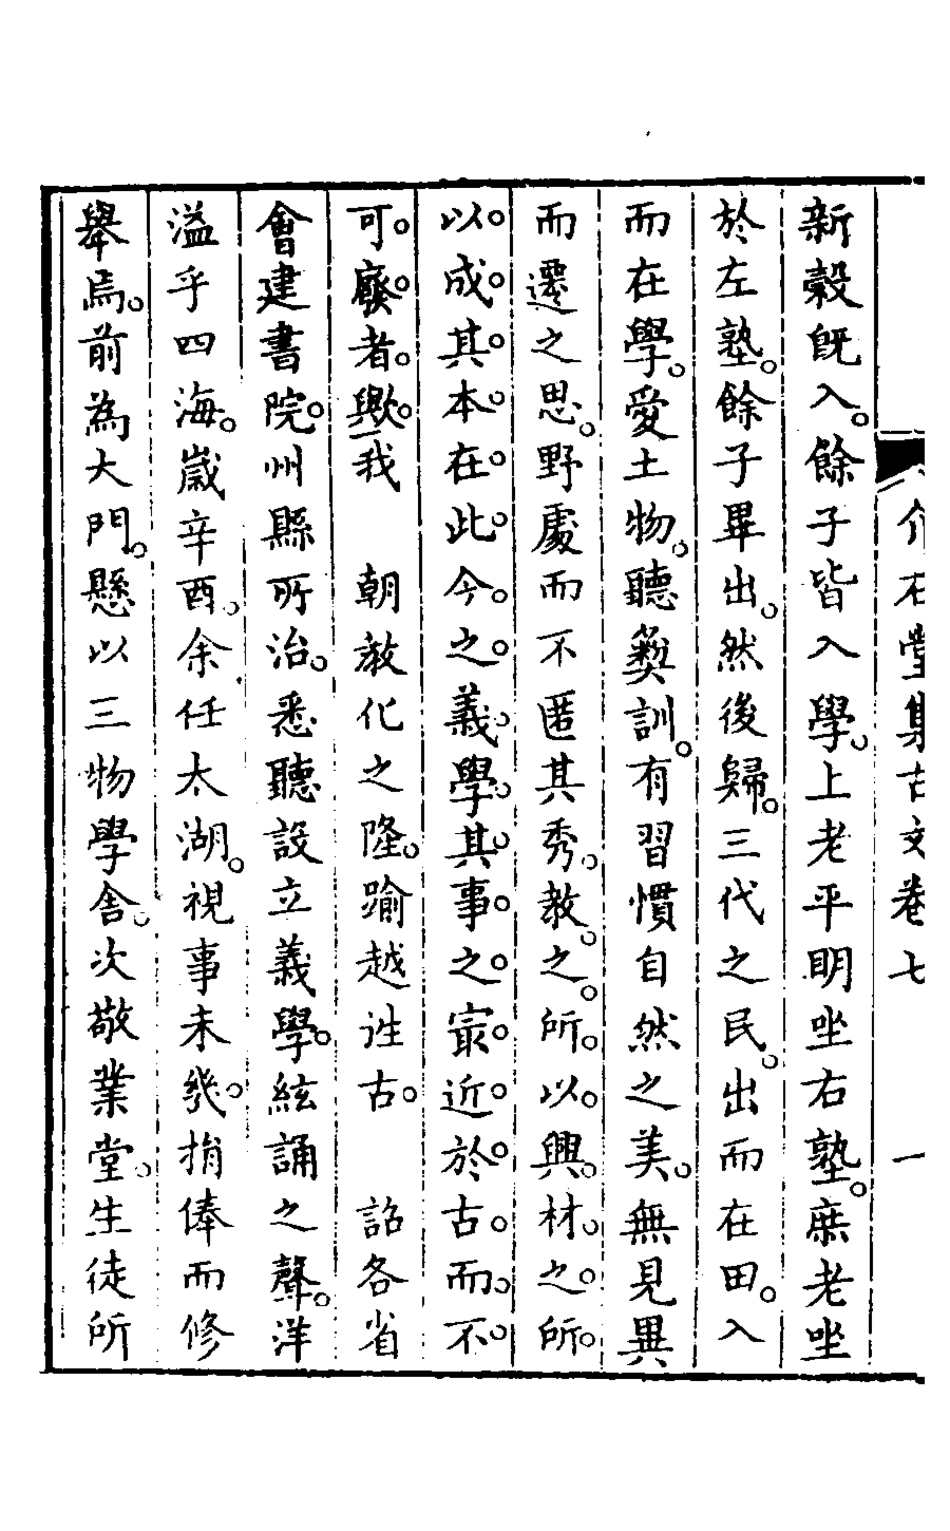 介石堂集古文卷七 一
新穀旣入。餘子皆入學。上老平明坐右塾。庶老坐
於左塾。餘子畢出。然後歸。三代之民。出而在田。入
而在學。愛土物。聽彝訓。有習慣自然之美。無見異
而遷之思。野處而不匿其秀。教之。所以興材之所
以成其本在此今之義學其事之最近於古而不
可廢者歟我 朝教化之隆。踰越往古。 詔各省
會建書院。州縣所治。悉聽設立義學。絃誦之聲。洋
溢乎四海。歲辛酉。余任太湖。視事未幾。捐俸而修
舉焉。前為大門。懸以三物學舍。次敬業堂。生徒所